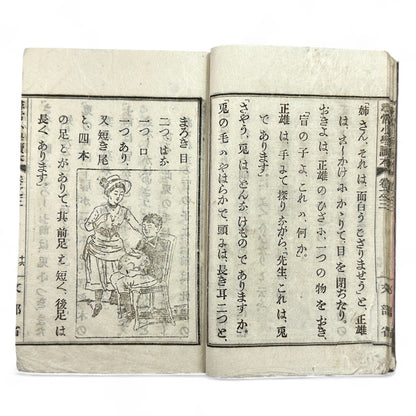 尋常小學讀本 卷之三
「姉さん、それは、面白うござりませう」と、正雄
は、こしかけにかゝりて、目を閉ぢたり。
おきよは、正雄のひざに、一つの物をおき、
「盲の子よ、これハ、何か。」
正雄は、手よて探りながら、「先生、これは、兎
であります。」
「さやう、兎は、どんなけものでありますか。」
「兎の毛ハ、やはらかで、頭よは、長き耳二つと、
文部省
まろき目
二つ、はな
一つ、口
一つあり、
又短き尾
と、四本
の足とがありて、其前足ハ短く、後足は
長くあります。」
文部省